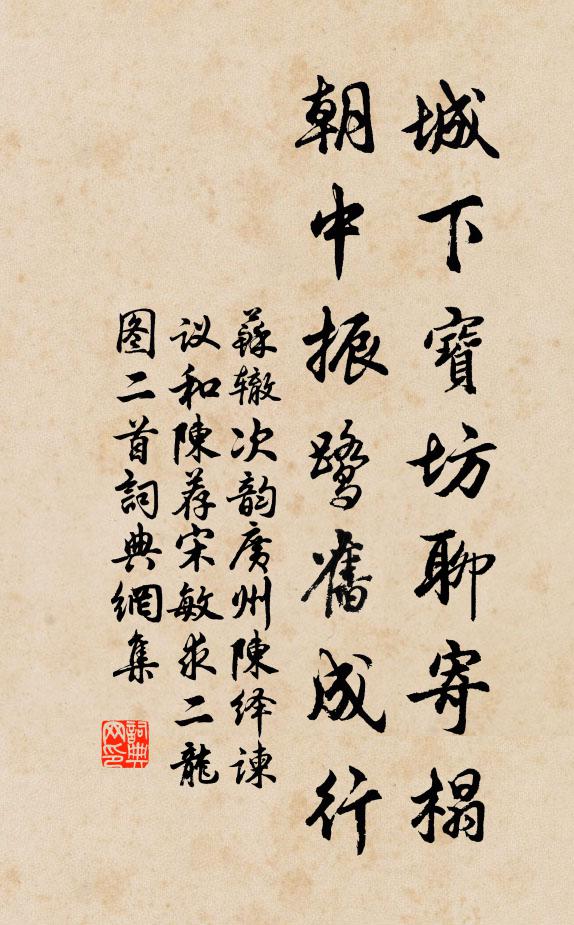 城下寶坊聊寄榻
朝中振鹭舊成行
蘇辙次韵廣州陳绎谏
议和陳荐宋敏求二龍
图二首詞典網集
詞典网印